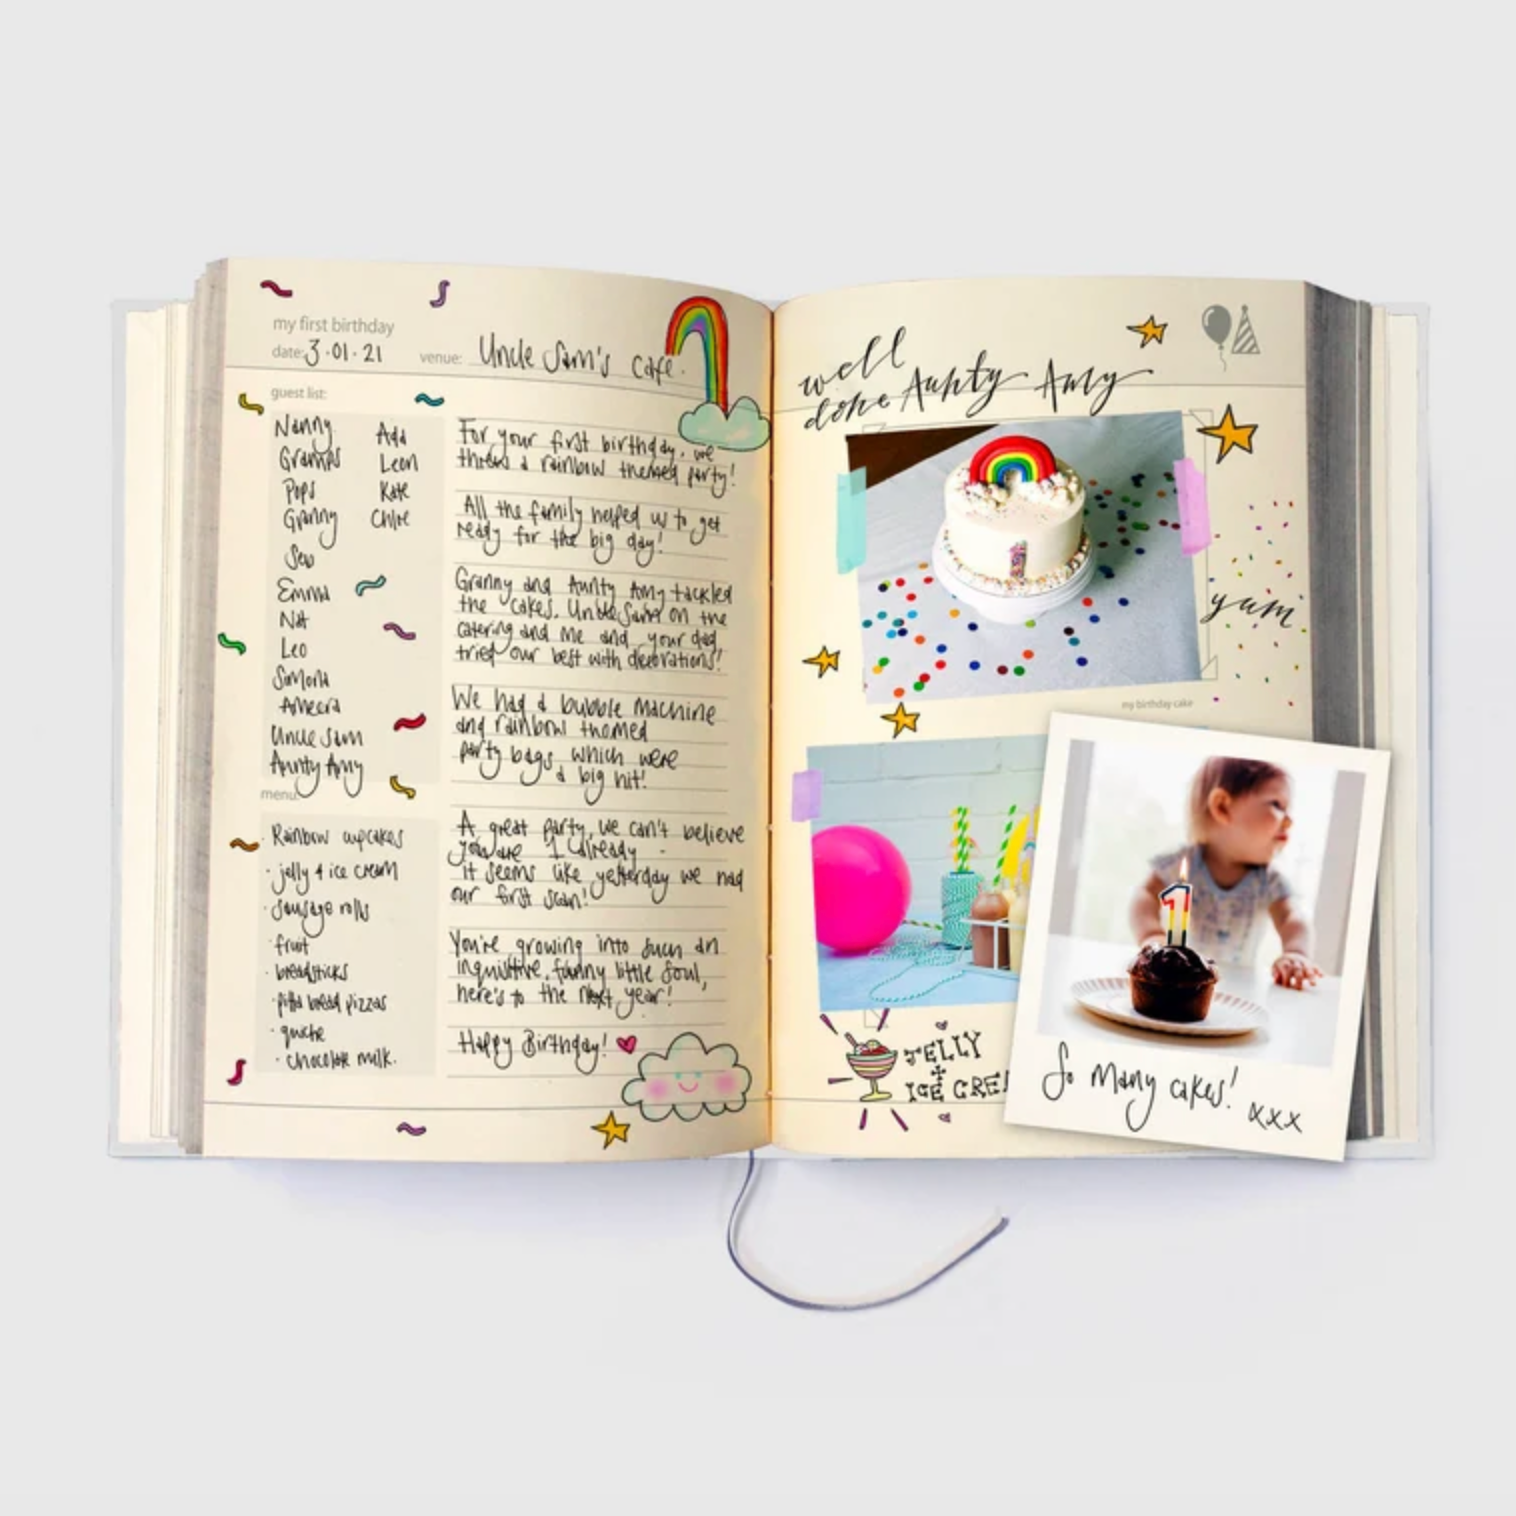 my first birthday
date: 3.01.21 venue: Uncle Sam's cafe.
guest list:
Nanny Ada
Gramps Leon
Pops Kate
Granny Chloe
Seb
Emma
Nat
Leo
Simona
Ameera
Uncle Sam
Aunty Amy
menu:
· Rainbow cupcakes
· jelly & ice cream
· sausage rolls
· fruit
· breadsticks
· pitta bread pizzas
· quiche
· chocolate milk.
For your first birthday, we
threw a rainbow themed party!
All the family helped us to get
ready for the big day!
Granny and Aunty Amy tackled
the cakes. Uncle Sam on the
catering and me and your dad
tried our best with decorations!
We had a bubble machine
and rainbow themed
party bags which were
a big hit!
A great party, we can't believe
you are 1 already -
it seems like yesterday we had
our first scan!
You're growing into such an
inquisitive, funny little soul,
here's to the next year!
Happy Birthday!
well
done Aunty Amy
yum
my birthday cake
JELLY
+
ICE CRE
1
So many cakes!
xxx